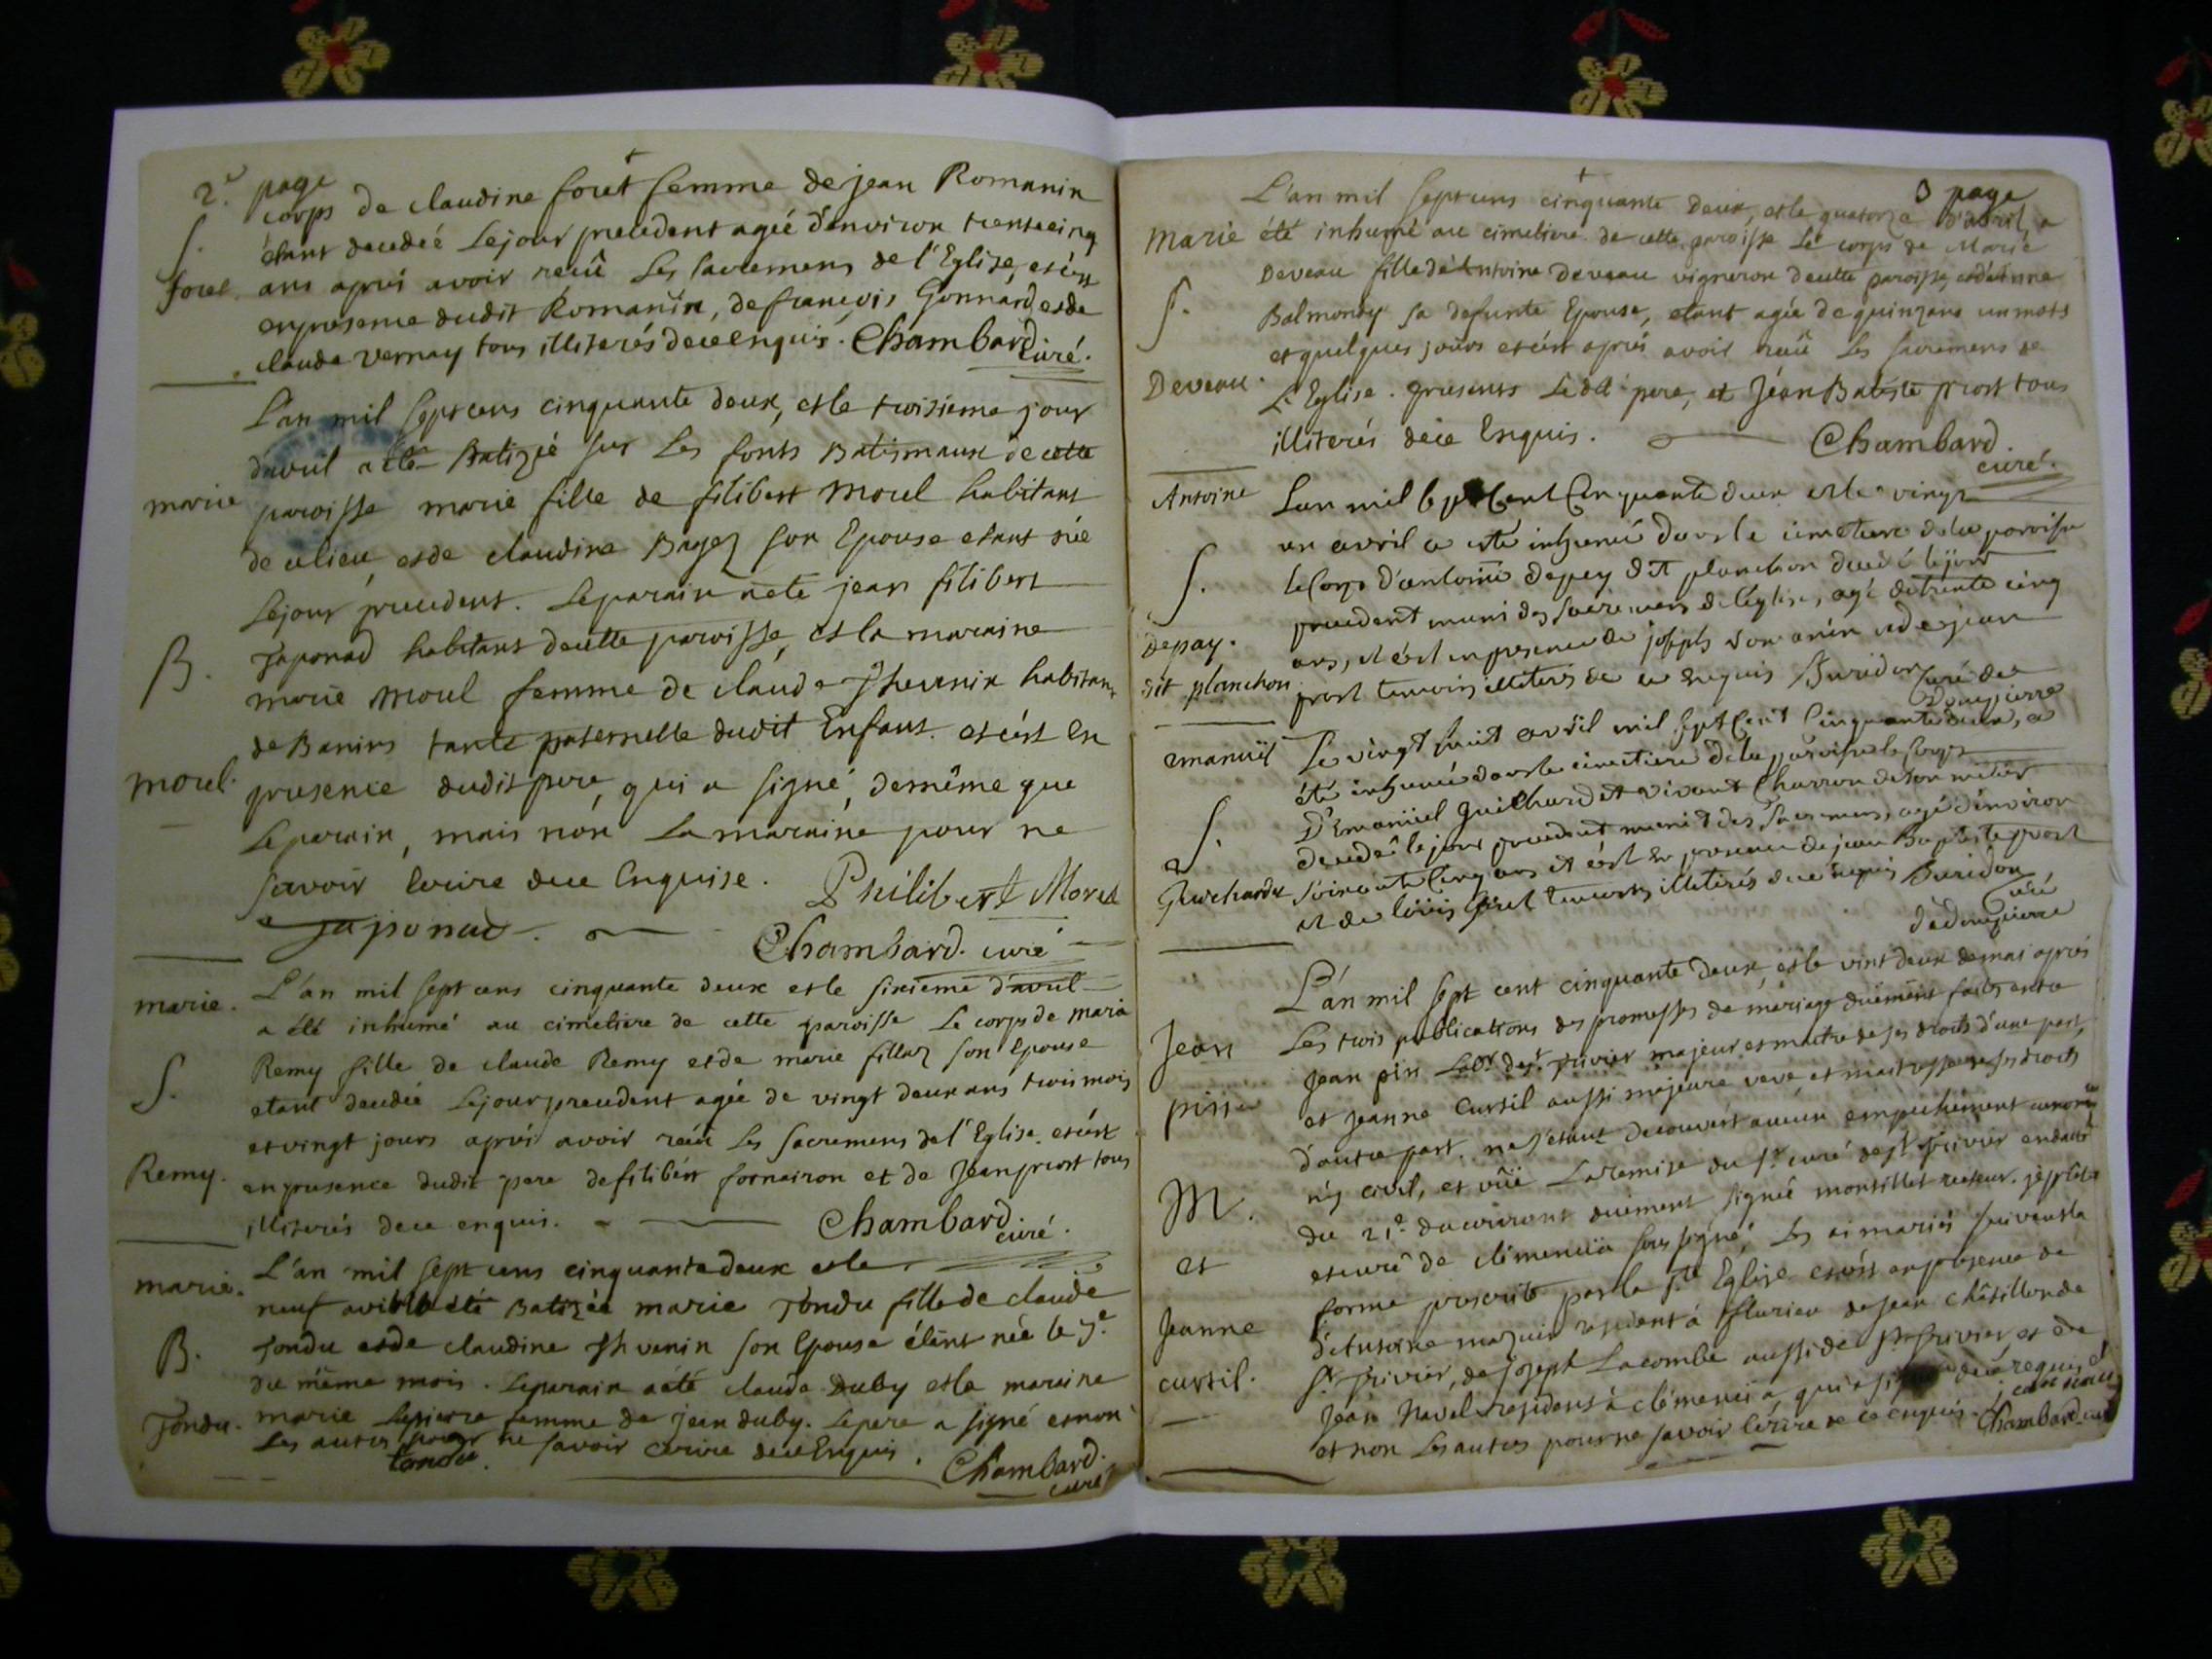 2.e page
corps de claudine foret femme de jean Romanin
S. étant decedeé Le jour precedent ageé d'environ trente cinq
foret. ans aprés avoir reçû Les Sacremens de l'Eglise, et c'est
en presence dudit Romanin, de françois Gonnard et de
claude vernay tous illiterés de ce enquis. Chambard
curé.
L'an mil sept cens cinquante deux, et le troisieme jour
d'avril a été Batizée sur Les fonts Batismaux de cette
marie paroisse marie fille de filibert morel habitant
de ce lieu, et de claudine Bagez son Epouse etant née
Le jour precedent. Le parain a été jean filibert
B. Japonad habitant de cette paroisse, et la maraine
marie morel femme de claude Thevenin habitant
de Banins tante paternelle dudit Enfant. et c'est en
morel. presence dudit pere, qui a signé, de même que
Le parain, mais non La maraine pour ne
savoir Ecrire de ce Enquise. Philibert Morel
Japonad. Chambard. curé
marie. L'an mil sept cens cinquante deux et le sixieme d'avril
a été inhumé au cimetiere de cette paroisse Le corps de marie
Remy fille de claude Remy et de marie filluz son Epouse
S. etant decedée Le jour precedent agée de vingt deux ans trois mois
et vingt jours aprés avoir reçu Les Sacremens de l'Eglise. et c'est
Remy. en presence dudit pere de filibert fornairon et de Jean prost tous
illiterés de ce enquis. Chambard
curé.
marie. L'an mil sept cens cinquante deux et le
neuf avril a été Batizée marie Tondu fille de claude
B. Tondu et de claudine Thevenin son Epouse étant née le 7.e
du même mois. Le parain a été claude Duby et la maraine
Tondu. marie Lapierre femme de jean duby. Le pere a signé et non
Les autres pour ne savoir ecrire de ce Enquis.
tondu. Chambard.
curé
3 page
L'an mil sept cens cinquante deux, et le quatorze d'avril, a
marie été inhumé au cimetiere de cette paroisse Le corps de Marie
Deveau fille de Antoine Deveau vigneron de cette paroisse, et d'
S. Balmondy sa defunte Epouse, etant agée de quinze ans un mois
et quelques jours et c'est aprés avoir reçû Les Sacremens de
Deveau. L'Eglise. presents Le dit pere, et Jean Batiste prost tous
illiterés de ce Enquis. Chambard.
curé.
Antoine L'an mil sept Cent Cinquante deux et le vingt
un avril a esté inhumé dans le cimetiere de la paroisse
S. le Corps d'antoine Depay dit planchon decedé le jour
precedent muni des Sacremens de l'église, agé de trente cinq
Depay. ans, et c'est en presence de joseph et de jean
dit planchon prost temoins illiterés de ce enquis Buridon curé de
Dompierre
emanuël Le vingt huit avril mil sept Cent Cinquante deux, a
été inhumé dans le cimetiere de la paroisse le Corps
S. D'Emanuel Guichard et vivant Charron de son metier
decedé le jour precedent muni des Sacremens, agé d'environ
Guichard soixante Cinq ans et c'est en presence de jean Baptiste prost
et de loüis foret temoins illiterés de ce enquis Buridon
curé
de dompierre
L'an mil sept cent cinquante deux et le vint deux de mai aprés
Jean Les trois publications des promesses de mariage duëment faites entre
Jean pin de st. trivier majeur et maitre de ses droits d'une part,
pin et Jeanne Curtil aussi majeure veve et maitresse de ses droits
d'autre part. ne s'etant decouvert aucun empechement canoni
M. n'y civil, et vûë La remise du sr. curé de st. trivier en datte
du 21.e du courant duëment signée monsillet recteur. je prêtre
et et curé de clémencia sous signé, Les ai mariés suivant la
forme prescrite par la ste Eglise. et c'est en presence de
Jeanne d'Antoine mazuir resident à fleurieu de Jean châtillon de
curtil. St. trivier, de Joseph Lacombe aussi de St. trivier, et de
Jean Navel residents à clémencia, qui a signé de ce requis
et non Les autres pour ne savoir Ecrire de ce enquis. Chambard curé